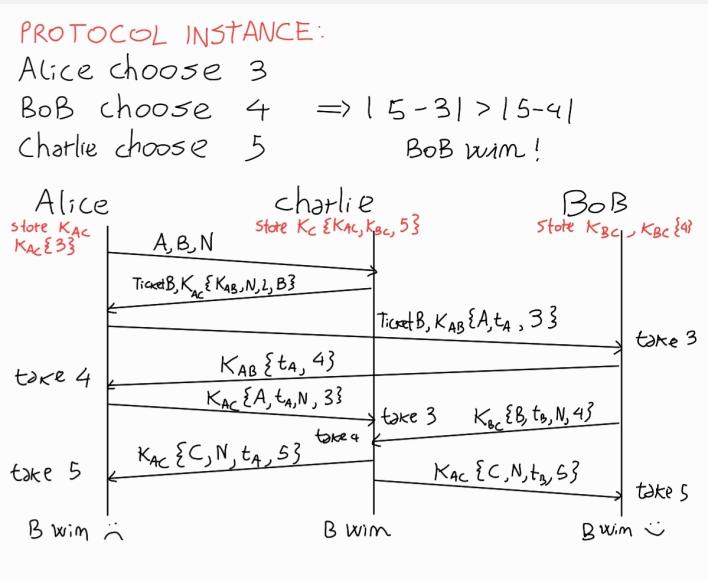 PROTOCOL INSTANCE:
Alice choose 3
BoB choose 4 => | 5 - 3 | > | 5 - 4 |
Charlie choose 5 BoB wim !
Alice charlie BoB
store KAC store KC {KAC, KBC, 5} store KBC, KBC{4}
KAC{3}
A, B, N
TicketB, KAC{KAB, N, L, B}
TicketB, KAB{A, tA, 3}
take 3
KAB {tA, 4}
take 4
KAC {A, tA, N, 3}
take 3 KBC {B, tB, N, 4}
take 4
KAC {C, N, tA, 5}
take 5 KAC {C, N, tB, 5}
take 5
B wim :( B wim B wim :)